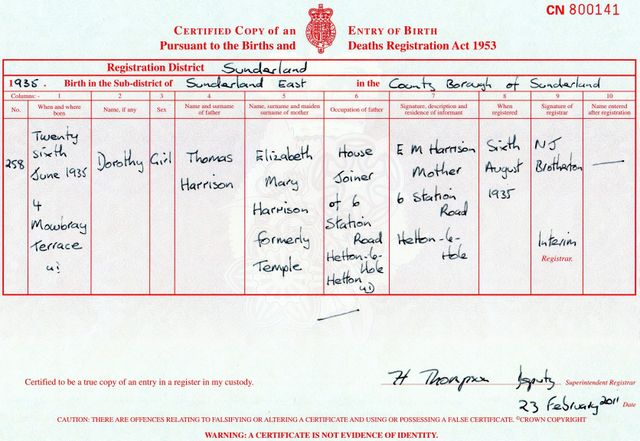 CN 800141
CERTIFIED COPY of an ENTRY OF BIRTH
Pursuant to the Births and Deaths Registration Act 1953
Registration District Sunderland
1935. Birth in the Sub-district of Sunderland East in the County Borough of Sunderland
Columns: - 1 2 3 4 5 6 7 8 9 10
No. When and where born Name, if any Sex Name and surname of father Name, surname and maiden surname of mother Occupation of father Signature, description and residence of informant When registered Signature of registrar Name entered after registration
258
Twenty
sixth
June 1935
4
Mowbray
Terrace
u.d
Dorothy
Girl
Thomas
Harrison
Elizabeth
Mary
Harrison
formerly
Temple
House
Joiner
of 6
Station
Road
Hetton-le-
Hole
Hetton
u.d
E M Harrison
Mother
6 Station
Road
Hetton-le-
Hole
Sixth
August
1935
N J
Brotherton
Interim
Registrar.
Certified to be a true copy of an entry in a register in my custody.
H Thompson Deputy Superintendent Registrar
23 February 2011 Date
CAUTION: THERE ARE OFFENCES RELATING TO FALSIFYING OR ALTERING A CERTIFICATE AND USING OR POSSESSING A FALSE CERTIFICATE. ©CROWN COPYRIGHT
WARNING: A CERTIFICATE IS NOT EVIDENCE OF IDENTITY.